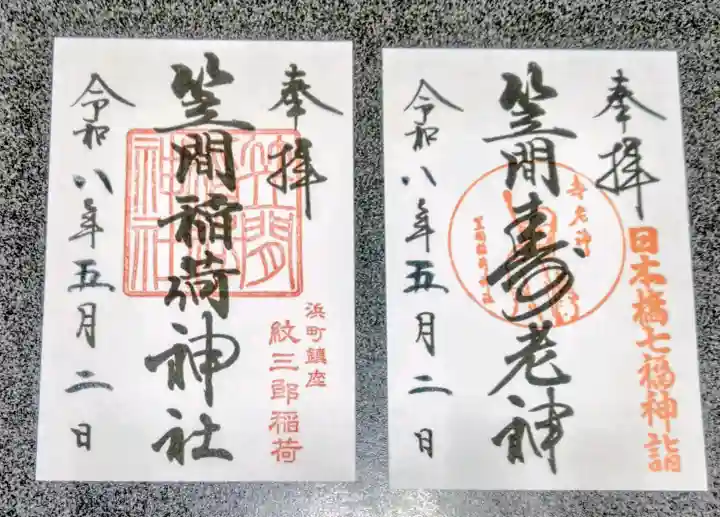 奉拝
笠間稲荷神社
笠間稲荷神社
浜町鎮座
紋三郎稲荷
令和八年五月二日
奉拝
日本橋七福神詣
笠間寿老神
寿老神
笠間稲荷神社
令和八年五月二日